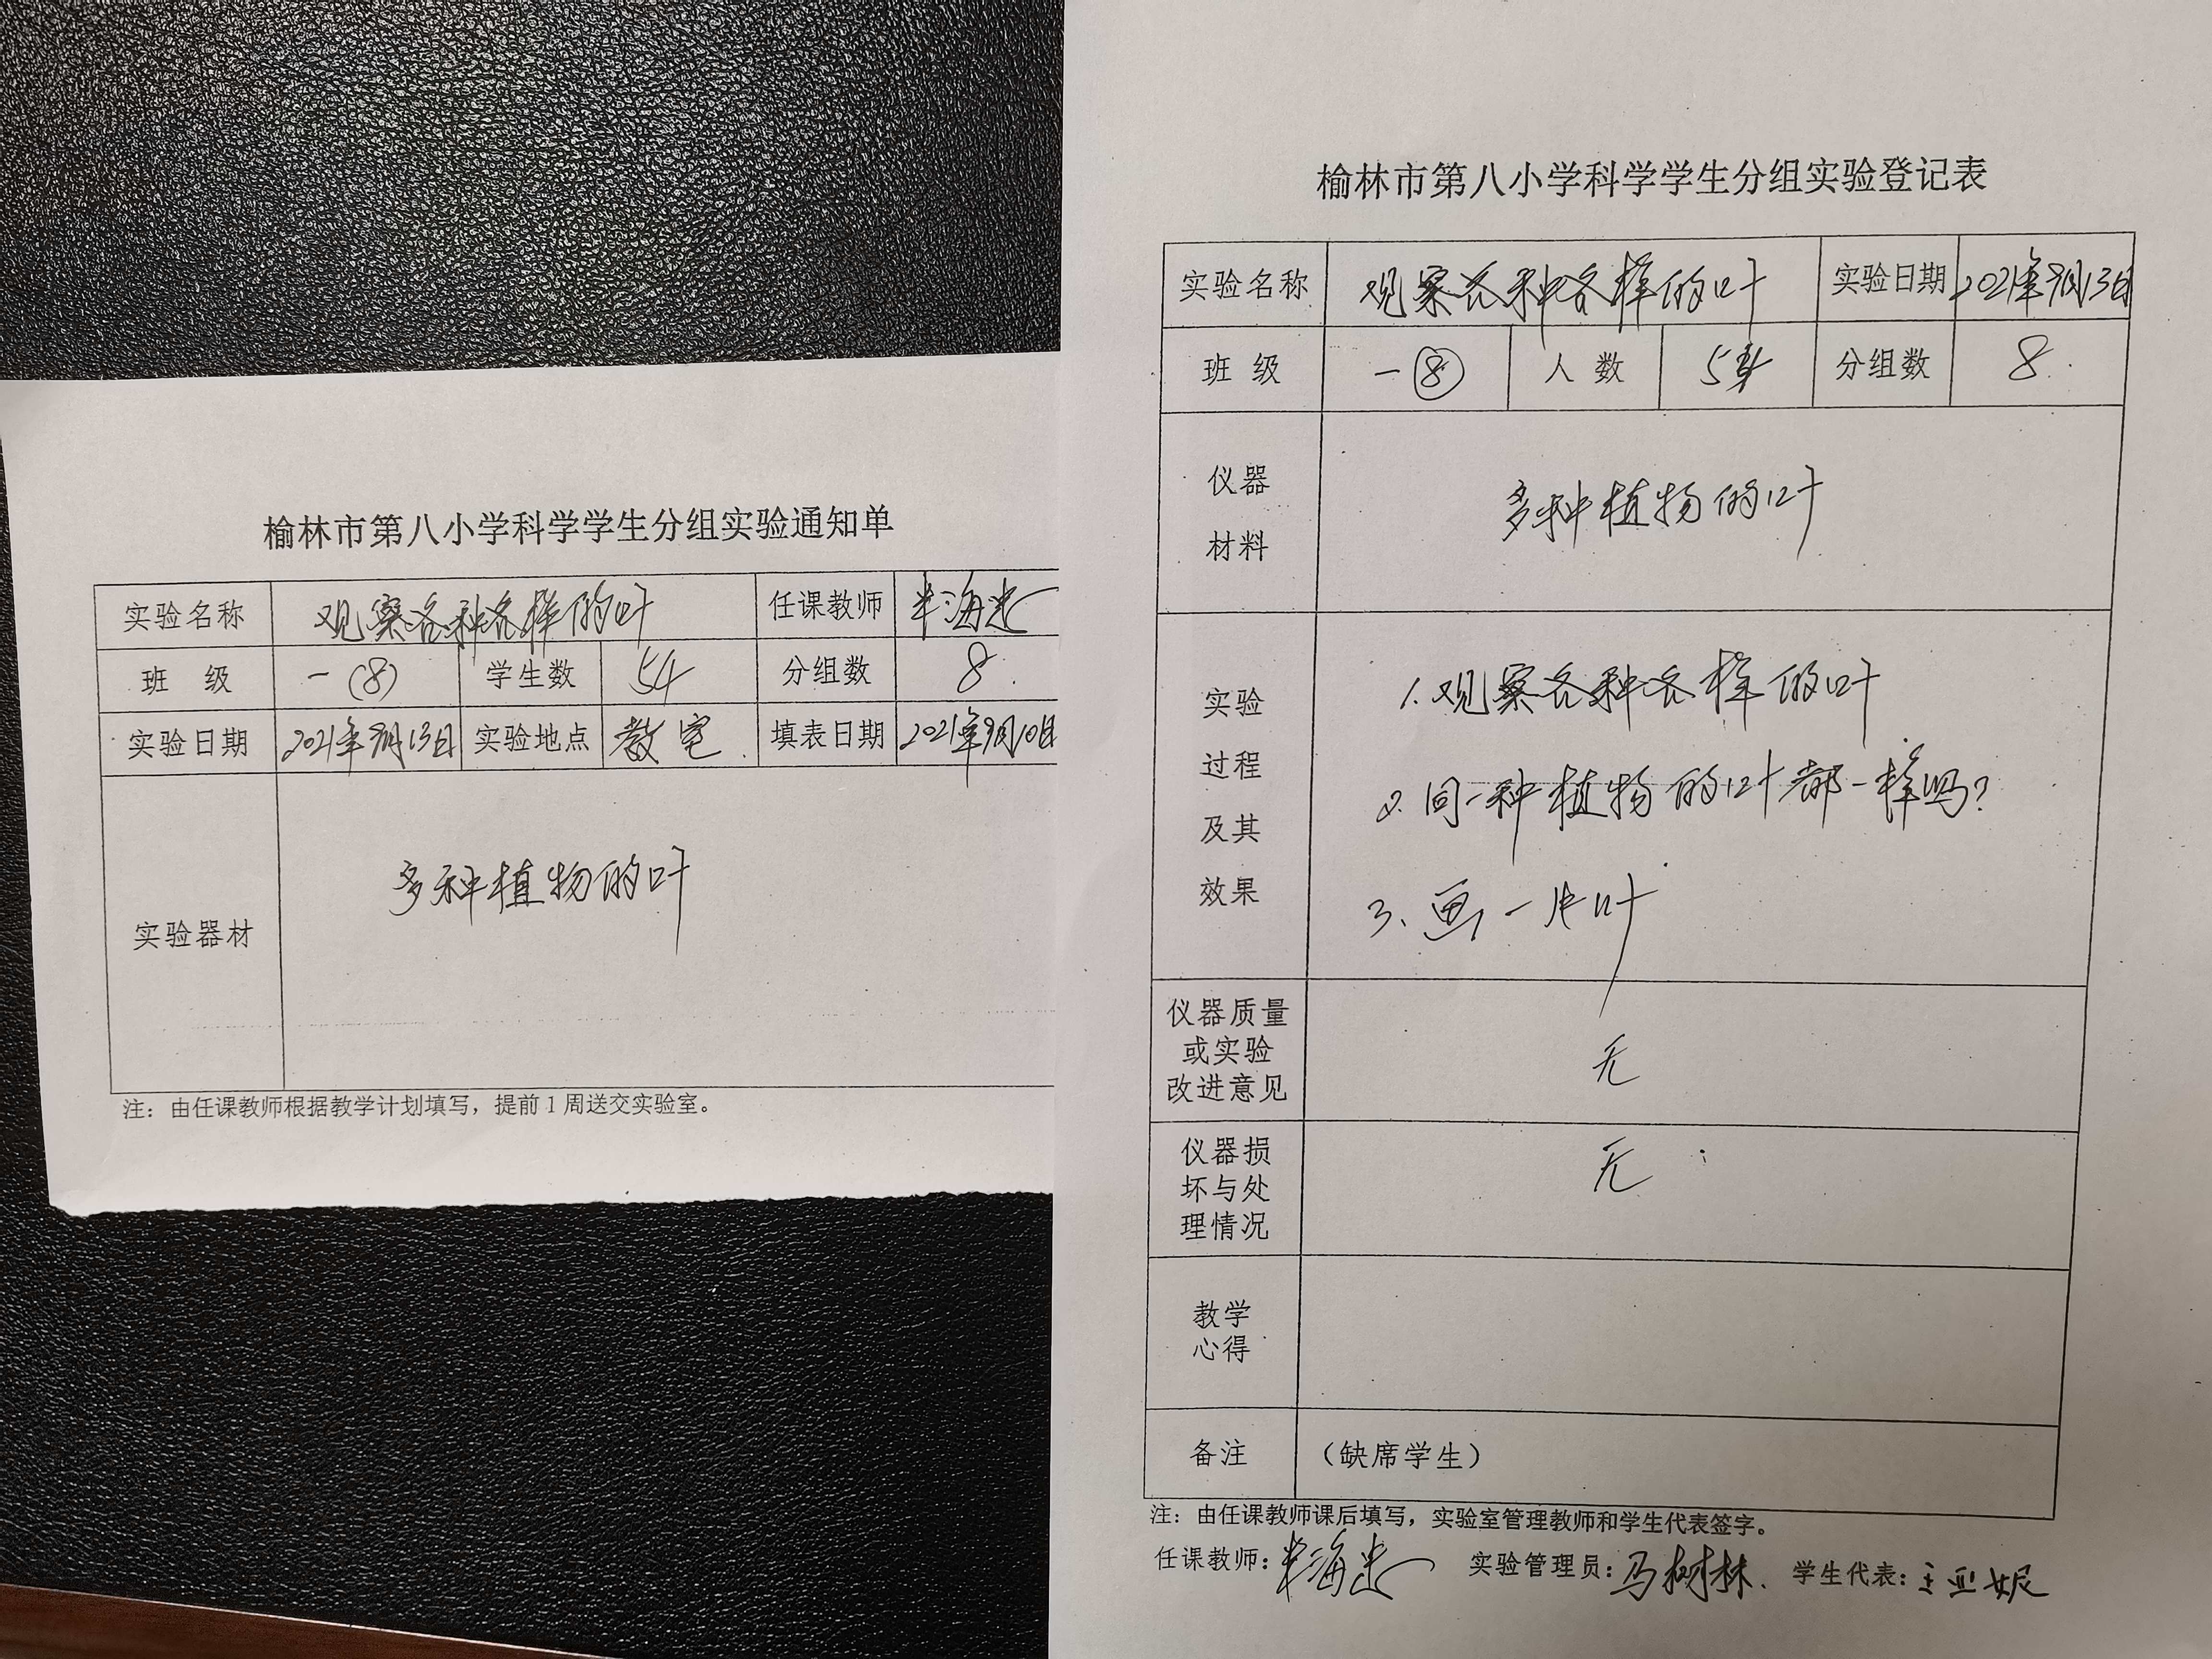 榆林市第八小学科学学生分组实验通知单
实验名称 观察各种各样的叶 任课教师
班 级 一(8) 学生数 54 分组数 8
实验日期 2021年9月13日 实验地点 教室 填表日期 2021年9月10日
实验器材 多种植物的叶
注：由任课教师根据教学计划填写，提前1周送交实验室。
榆林市第八小学科学学生分组实验登记表
实验名称 观察各种各样的叶 实验日期 2021年9月13日
班 级 一⑧ 人 数 54 分组数 8
仪器
材料
多种植物的叶
实验
过程
及其
效果
1.观察各种各样的叶
2.同一种植物的叶都一样吗?
3、画一片叶
仪器质量
或实验
改进意见
无
仪器损
坏与处
理情况
无
教学
心得
备注 （缺席学生）
注：由任课教师课后填写，实验室管理教师和学生代表签字。
任课教师： 实验管理员：马树林. 学生代表：王亚妮